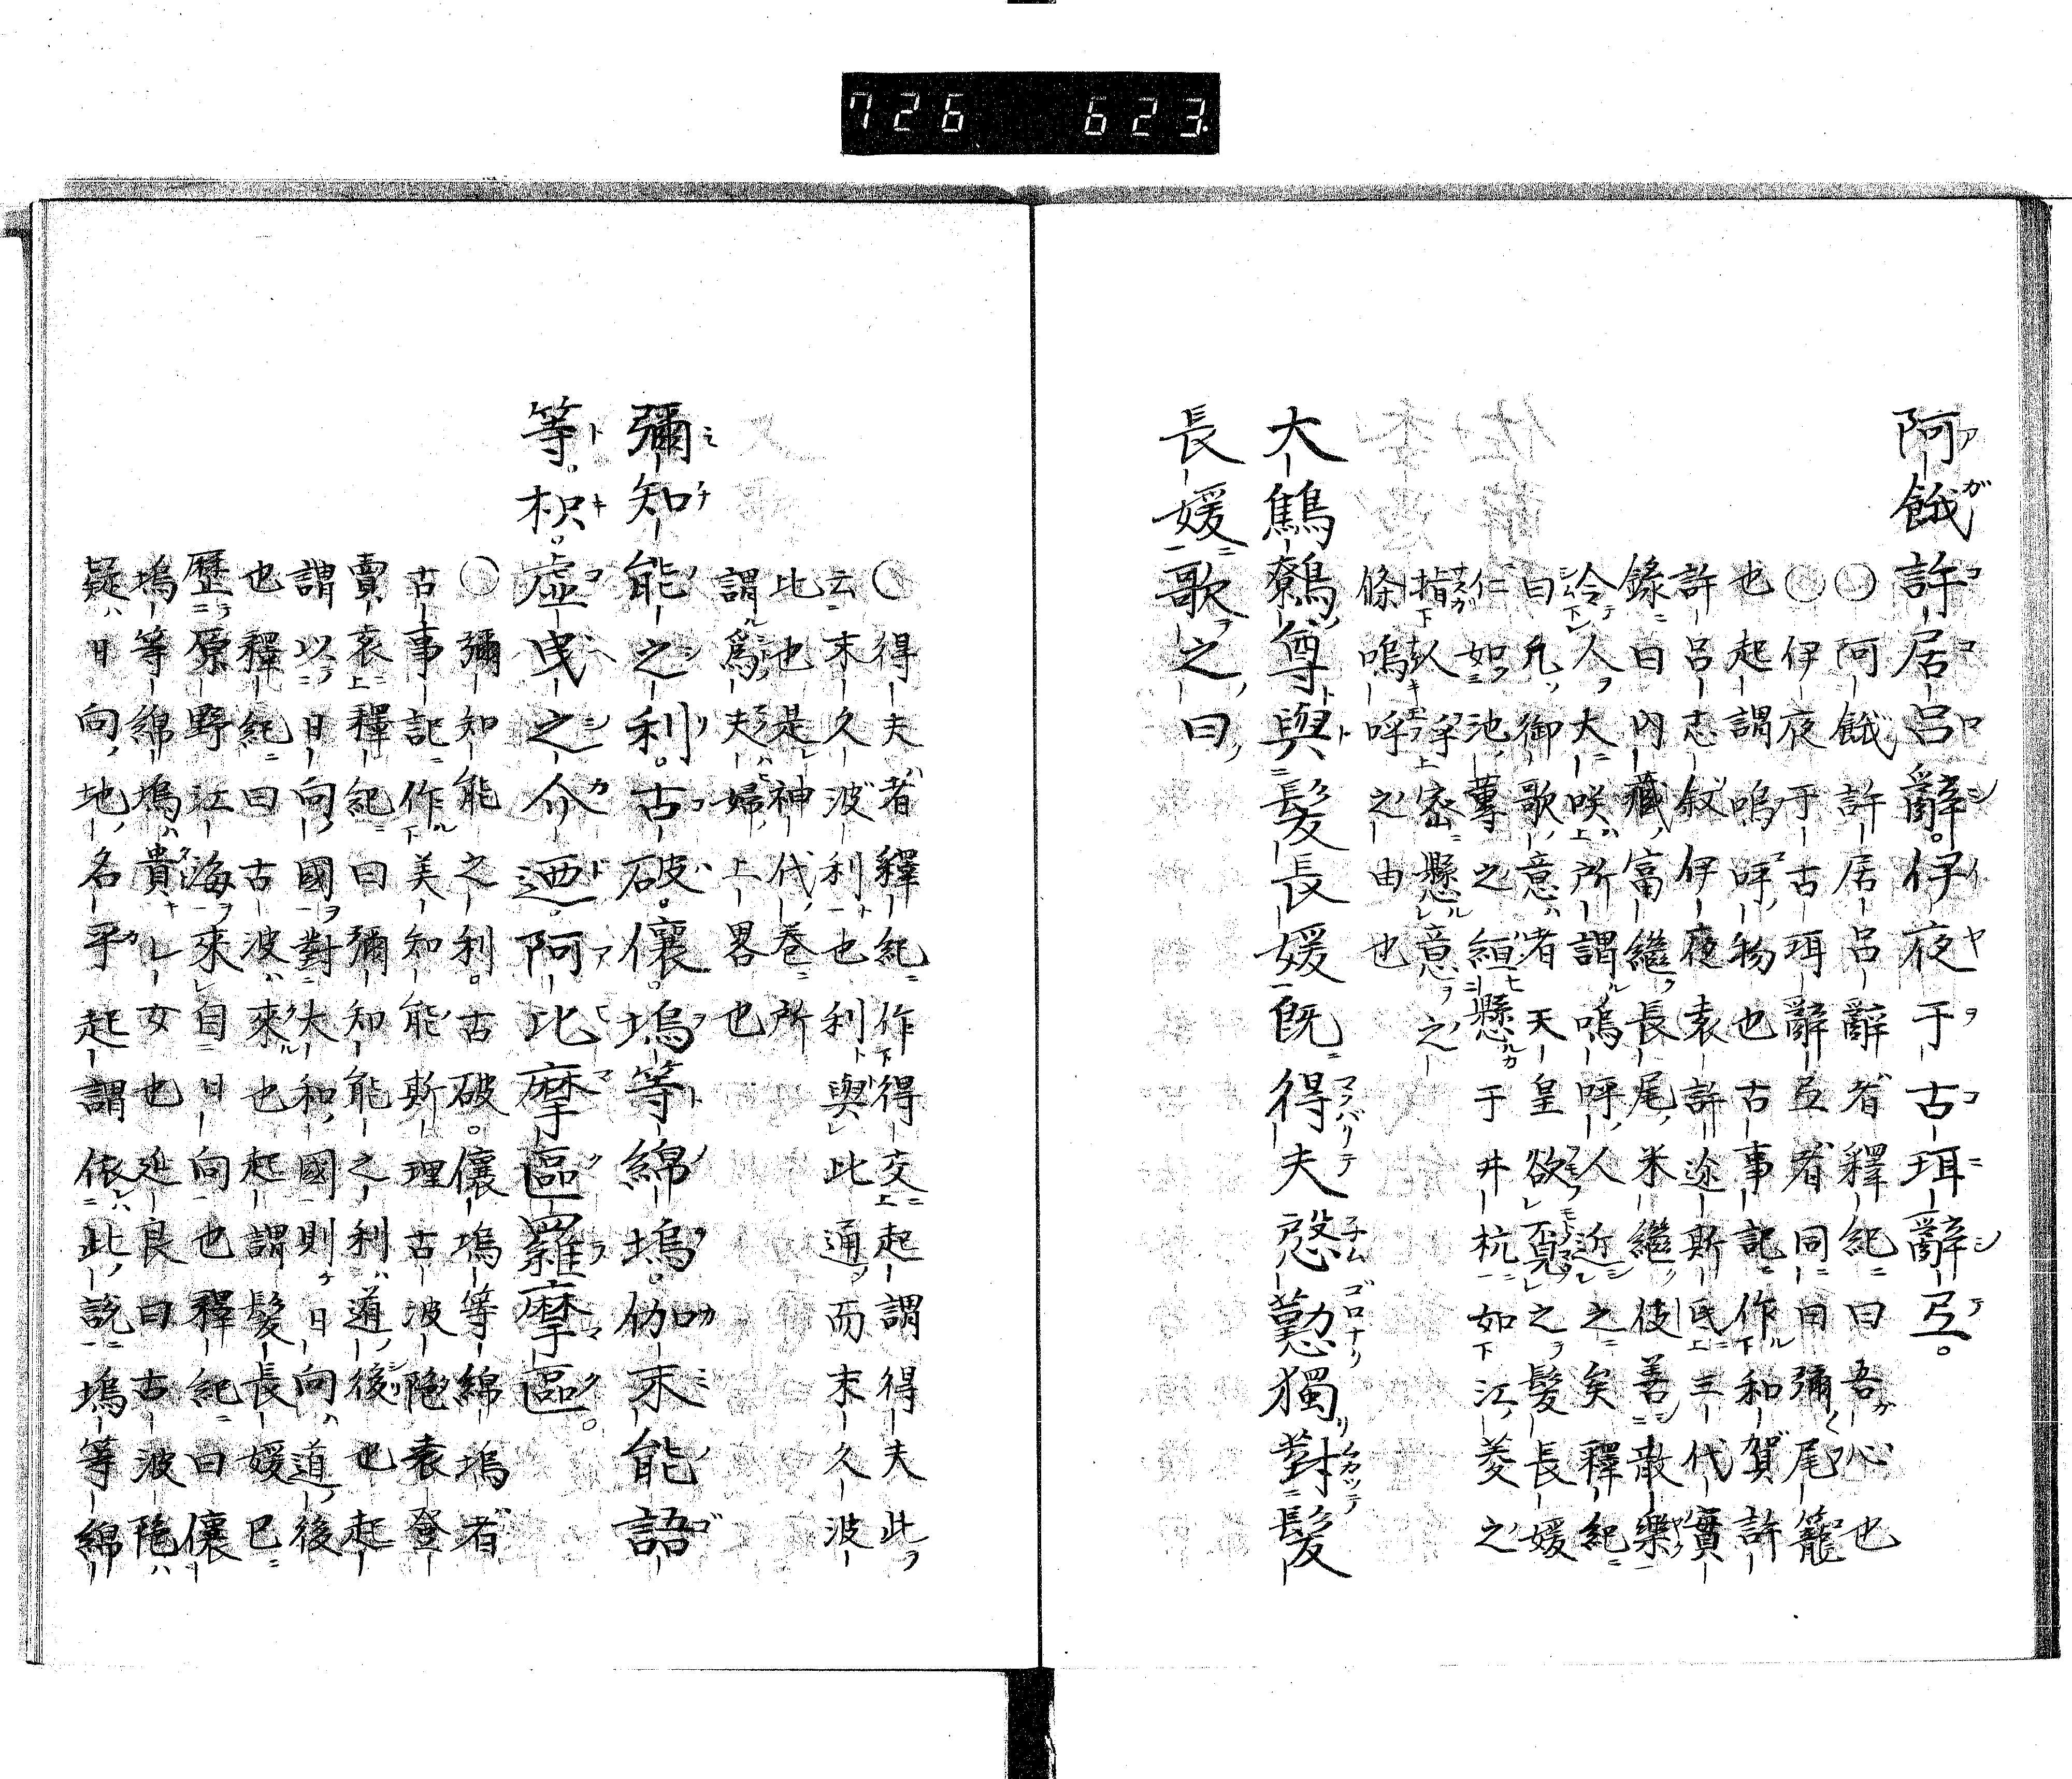 726 623.
阿餓許居呂辭。伊夜于古珥辭弖。
阿餓許居呂辭者釋紀曰吾心也
伊夜于古珥辭弖者同曰彌尾籠
也起謂嗚呼物也古事記作和賀許
許呂志叙伊夜袁許迩斯氏三代實
錄曰內藏富繼長尾米繼伎善散樂
令人大咲所謂嗚呼人近之矣釋紀
曰凡御歌意者天皇欲覓之髮長媛
仁如池蓴之縆懸于井杭如江菱之
指密懸意之
條嗚呼之由也
大鷦鷯尊與髮長媛既得夫慇懃獨對髮
長媛歌之曰
得夫者釋紀作得交起謂得夫此
云末久波利也利與此通而末久波
比也是神代卷所
謂爲夫婦上畧也
彌知能之利。古破儴。塢等綿塢。伽未能語
等。枳虛曳之介迺。阿比摩區羅摩區。
彌知能之利。古破儴塢等綿塢者
古事記作美知能斯理古波陁袁登
賣袁釋紀曰彌知能之利道後也起
謂以日向國對大和國則日向道後
也釋紀曰古波來也起謂髮長媛已
歷原野江海來自日向也釋紀曰儴
塢等綿塢貴女也延良曰古波陁
疑日向地名乎起謂依此說塢等綿